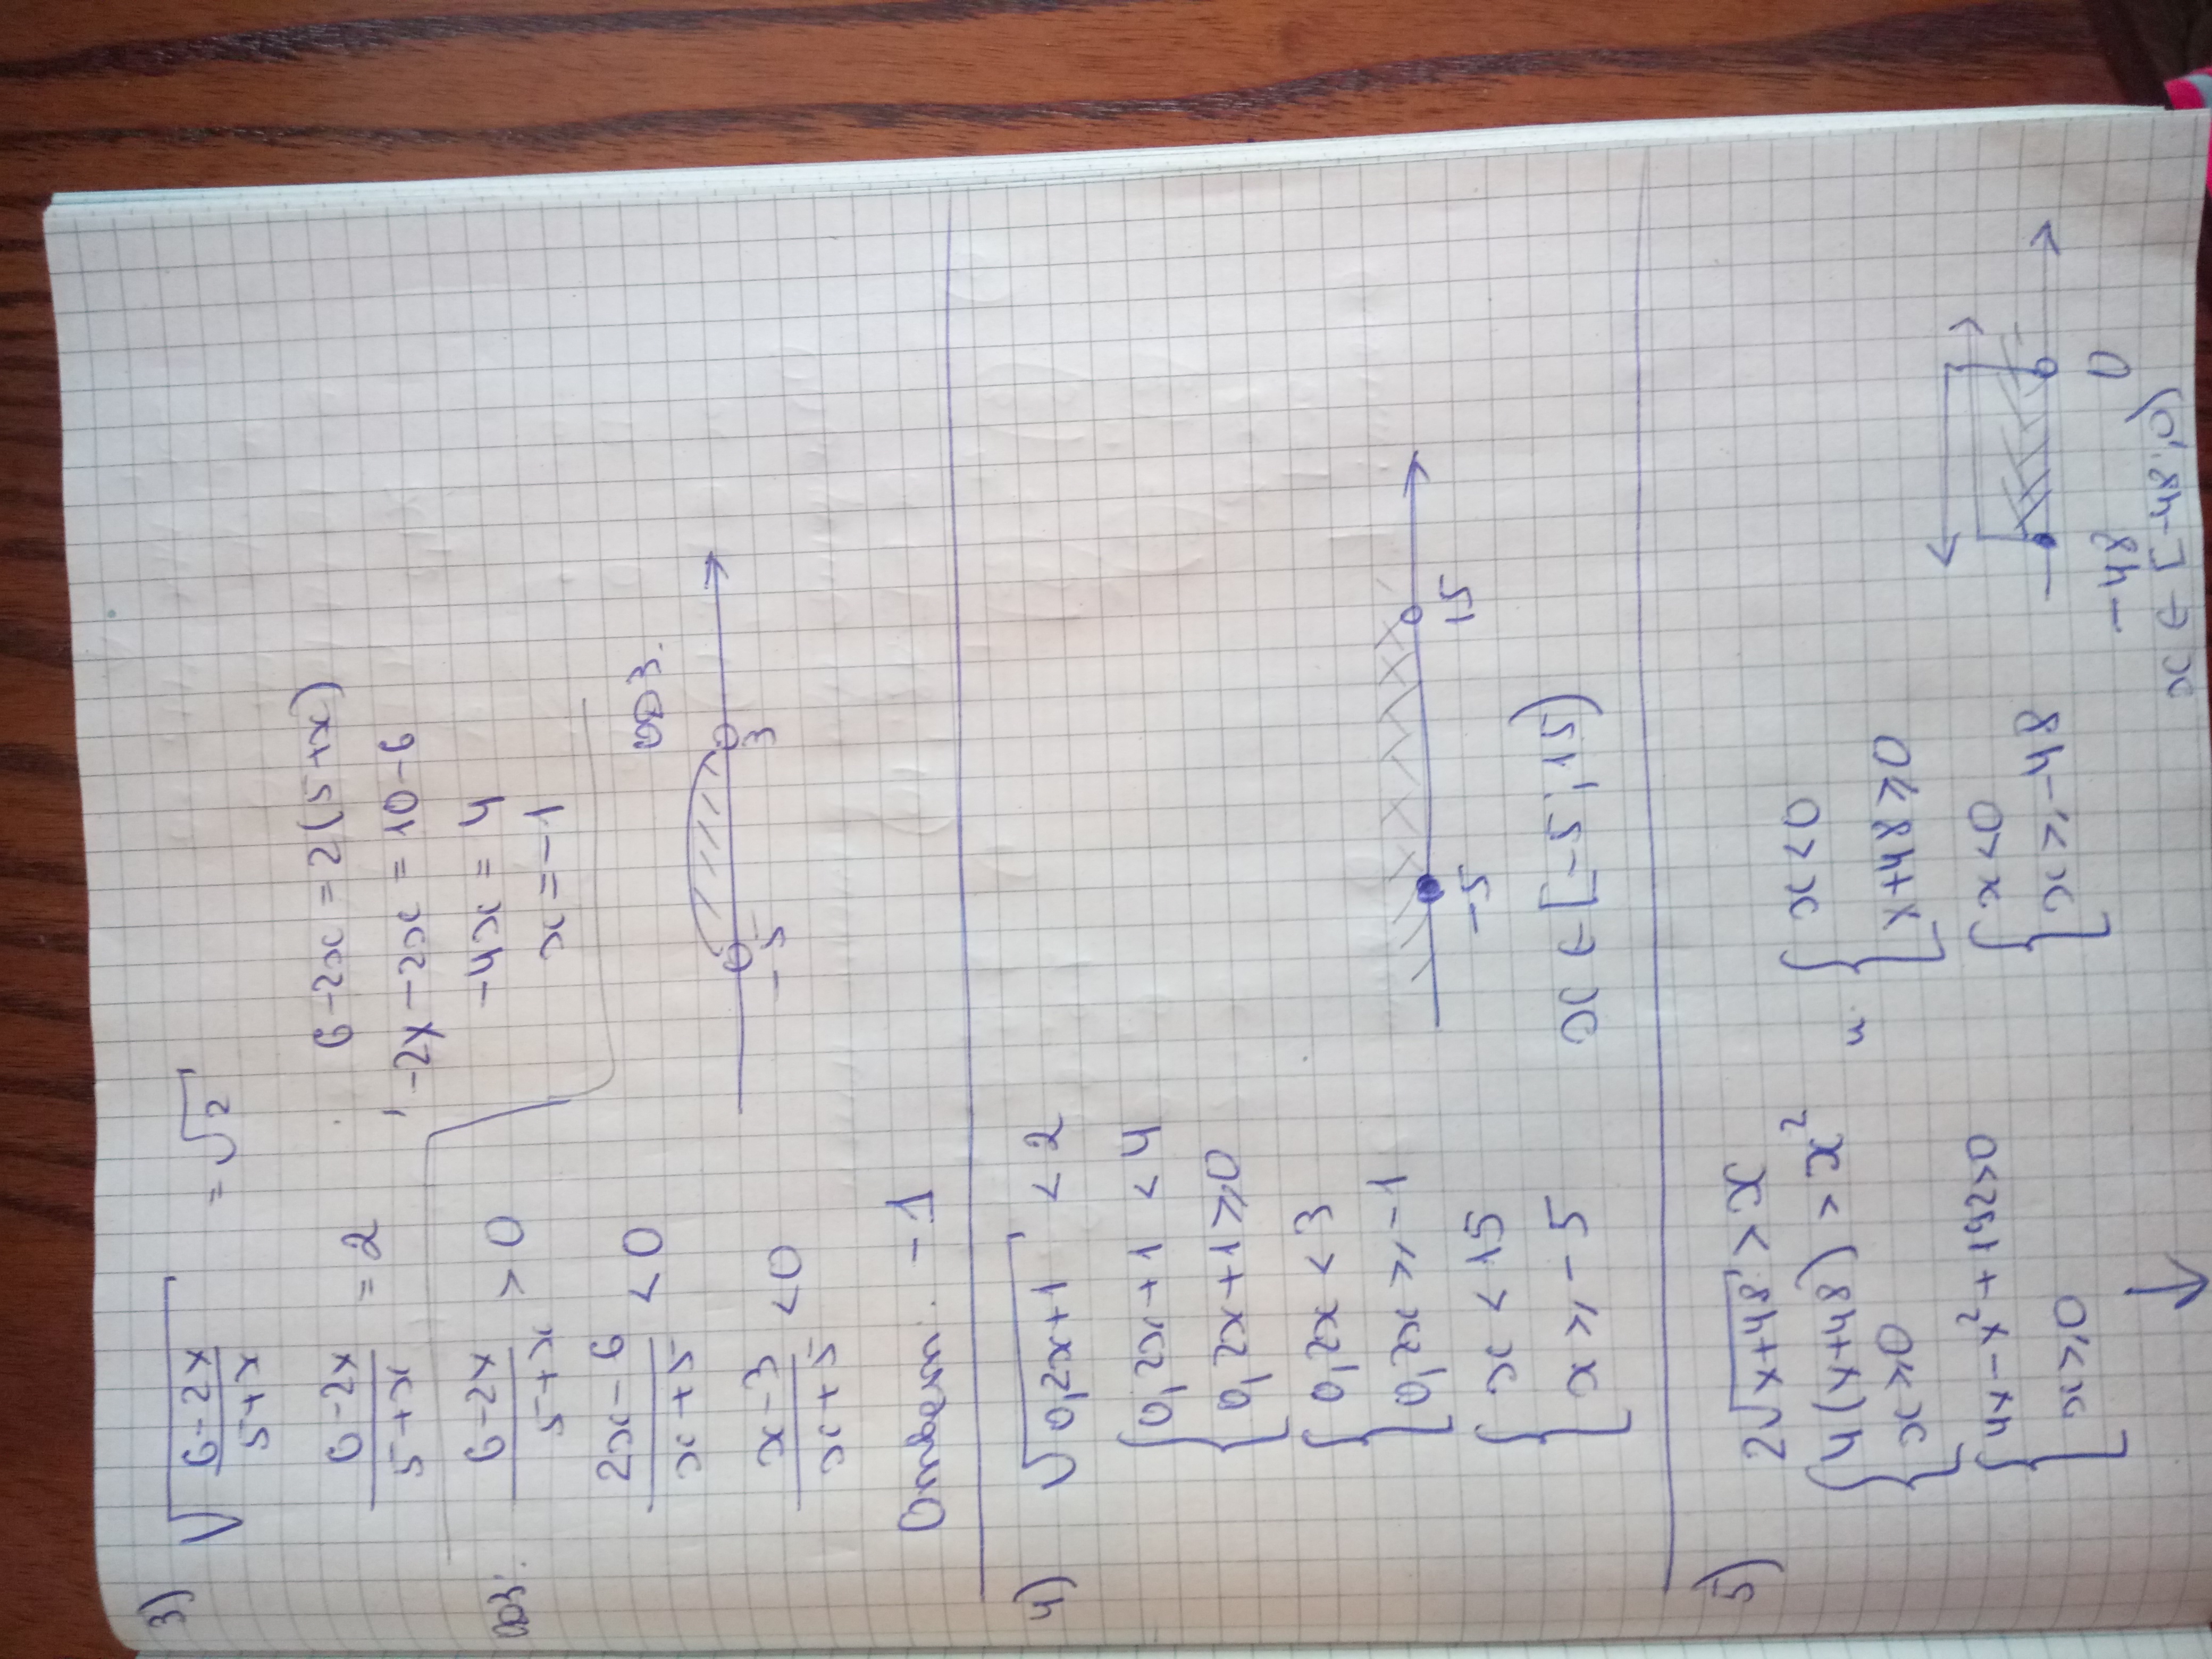 3) √(6-2x)/(5+x) = √2
(6-2x)/(5+x) = 2
6-2x = 2(5+x)
-2x-2x = 10-6
-4x = 4
x = -1
ОДЗ: (6-2x)/(5+x) > 0
(2x-6)/(x+5) < 0
(x-3)/(x+5) < 0
ОДЗ.
-5 3
Ответ: -1
4) √0,2x+1 < 2
{0,2x+1 < 4
0,2x+1 ⩾ 0
{0,2x < 3
0,2x ⩾ -1
{x < 15
x ⩾ -5
-5 15
x ∈ [-5; 15)
5) 2√x+48 > x
{4(x+48) > x²
x ⩾ 0
и
{x < 0
x+48 ⩾ 0
{4x-x²+192>0
x ⩾ 0
{x < 0
x ⩾ -48
-48 0
x ∈ [-48; 0)